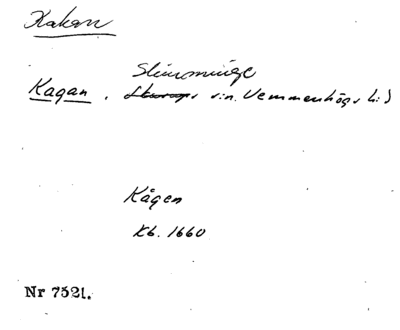 Kakan
Slimminge
Kagan, s:n. Vemmenhögs h:d
Kågen
Kb. 1660
Nr 7521.